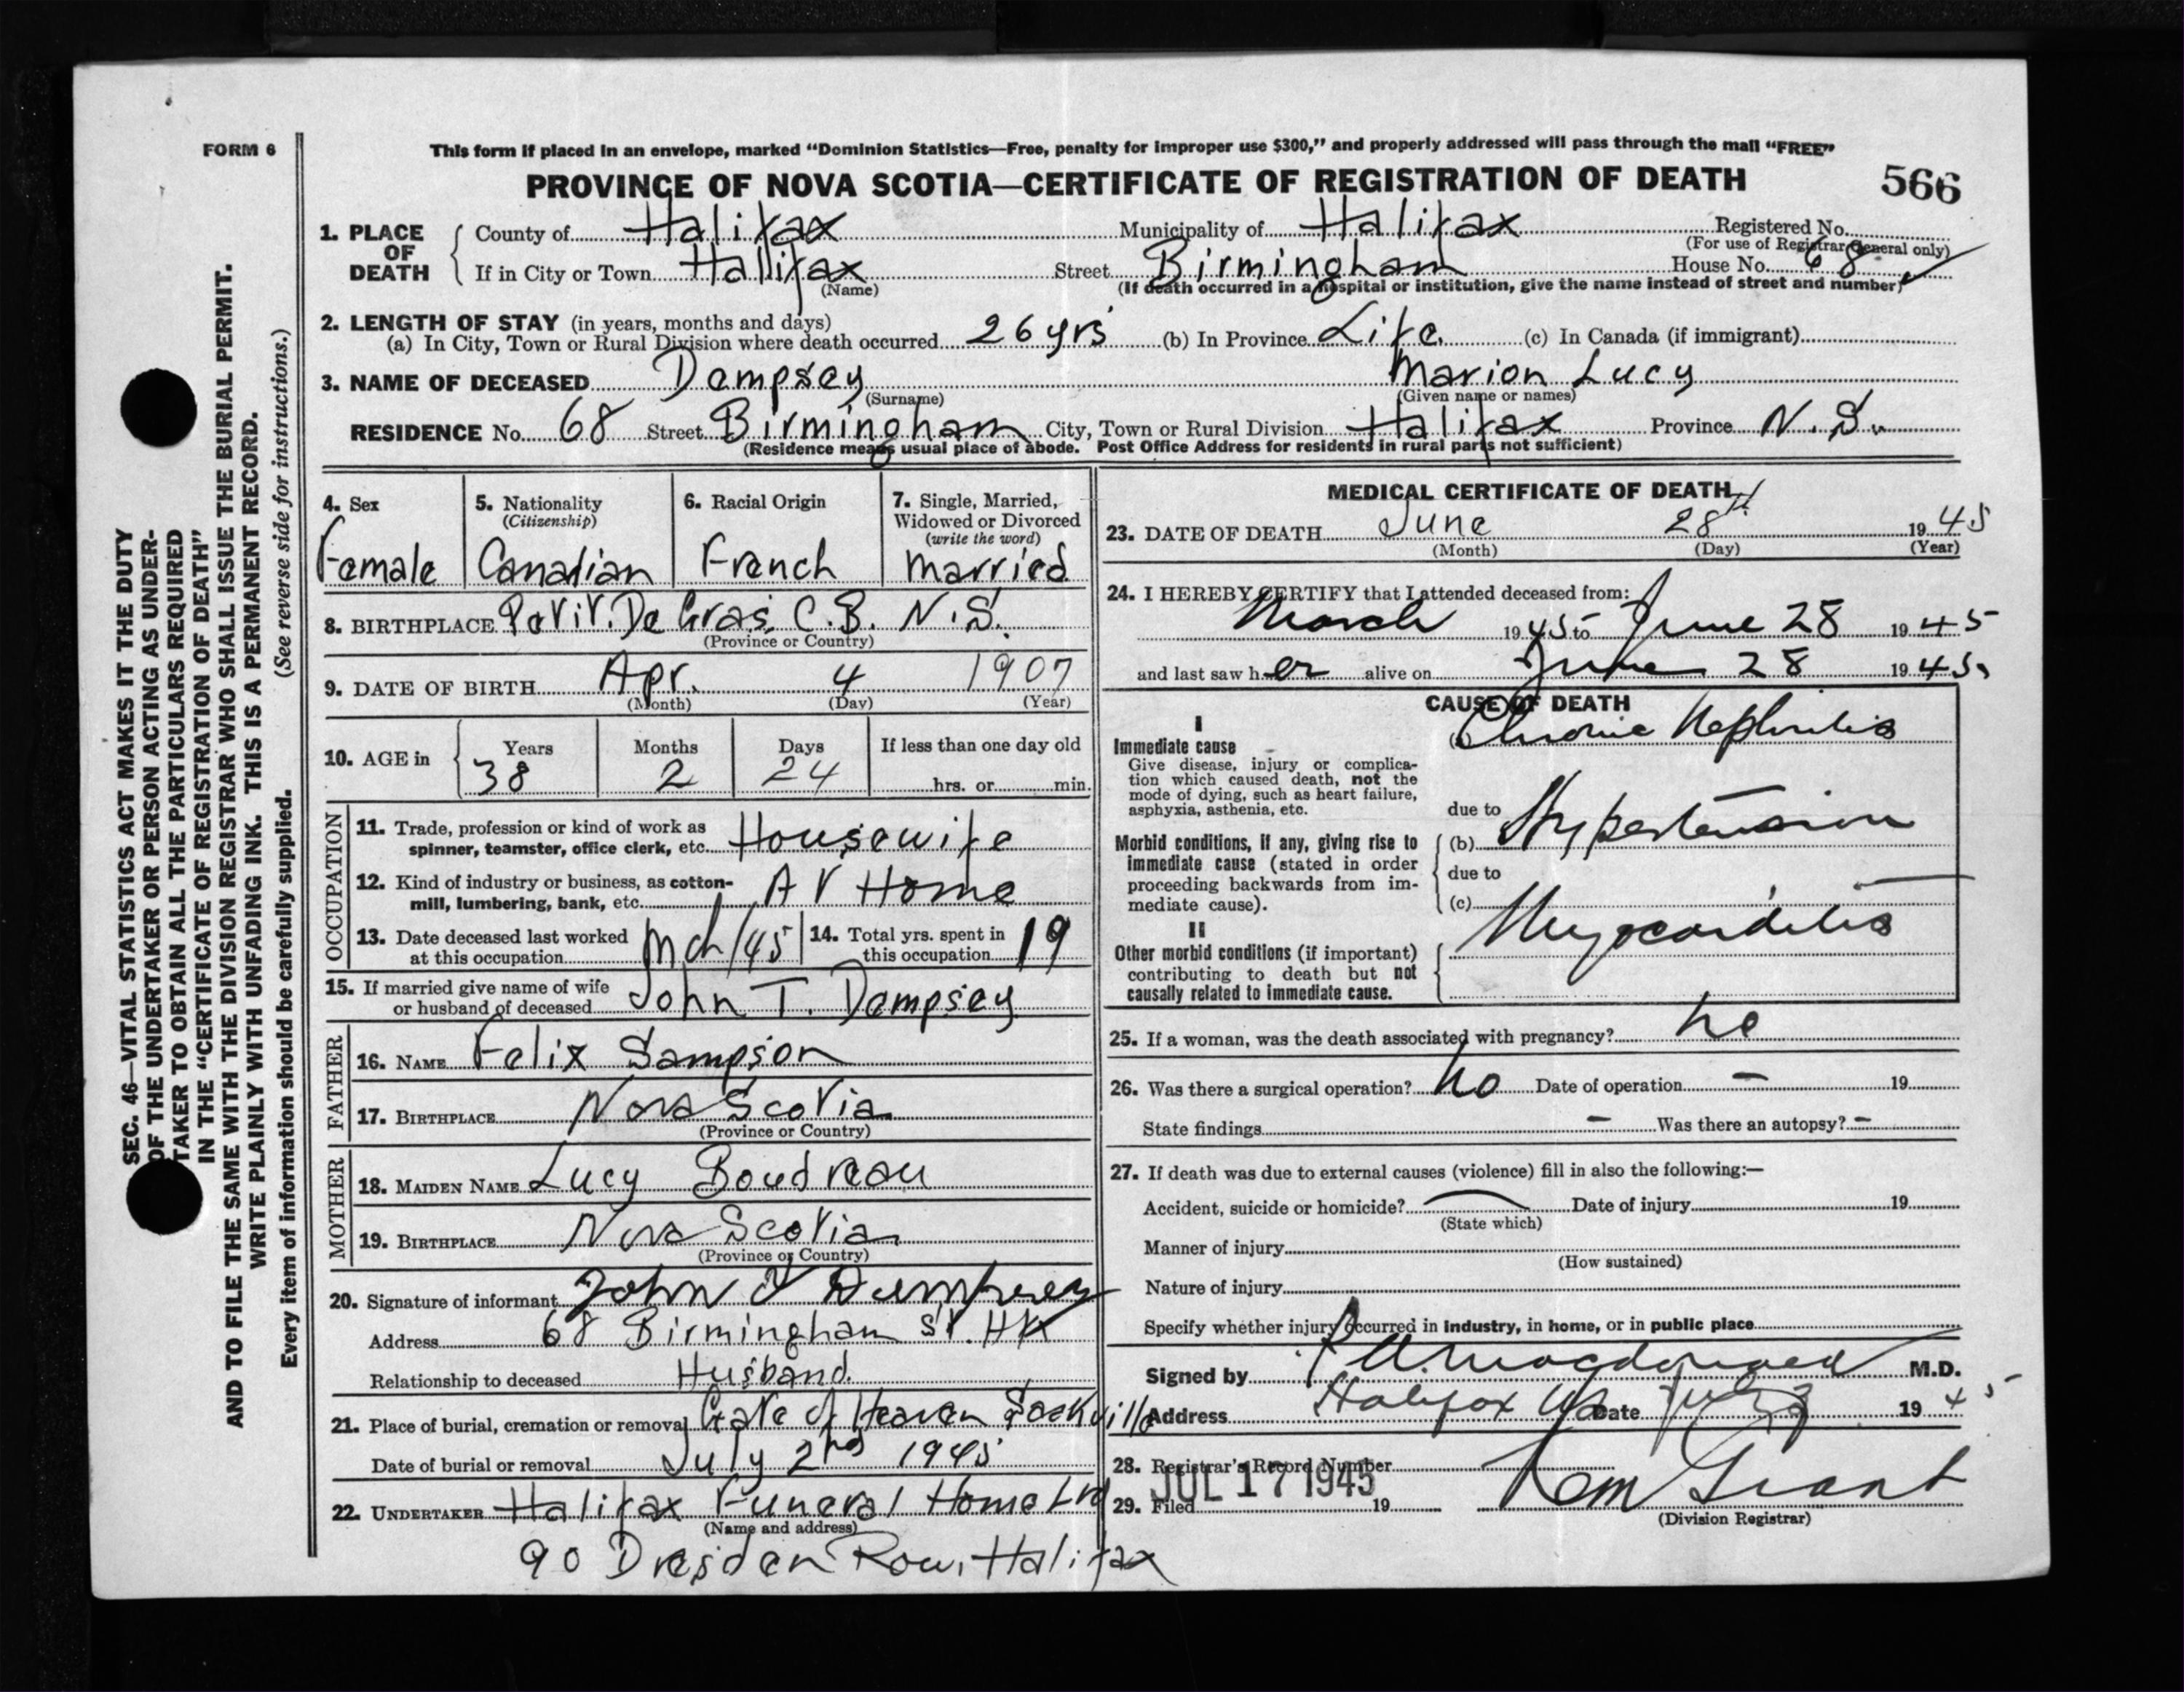 FORM 6
This form if placed in an envelope, marked "Dominion Statistics—Free, penalty for improper use $300," and properly addressed will pass through the mail "FREE"
PROVINCE OF NOVA SCOTIA—CERTIFICATE OF REGISTRATION OF DEATH
566
1. PLACE OF DEATH
County of Halifax Municipality of Halifax Registered No.
(For use of Registrar General only)
If in City or Town Halifax Street Birmingham House No. 68
(Name) (If death occurred in a hospital or institution, give the name instead of street and number)
2. LENGTH OF STAY (in years, months and days)
(a) In City, Town or Rural Division where death occurred 26 yrs (b) In Province Life. (c) In Canada (if immigrant)
3. NAME OF DECEASED Dempsey Marion Lucy
(Surname) (Given name or names)
RESIDENCE No. 68 Street Birmingham City, Town or Rural Division Halifax Province N.S.
(Residence means usual place of abode. Post Office Address for residents in rural parts not sufficient)
4. Sex
Female
5. Nationality
(Citizenship)
Canadian
6. Racial Origin
French
7. Single, Married,
Widowed or Divorced
(write the word)
Married
8. BIRTHPLACE Petit. De Gras. C.B. N.S.
(Province or Country)
9. DATE OF BIRTH Apr. 4 1907
(Month) (Day) (Year)
10. AGE in
Years Months Days If less than one day old
38 2 24 hrs. or min.
OCCUPATION
11. Trade, profession or kind of work as
spinner, teamster, office clerk, etc. Housewife
12. Kind of industry or business, as cotton-
mill, lumbering, bank, etc. At Home
13. Date deceased last worked
at this occupation Mch/45
14. Total yrs. spent in
this occupation 19
15. If married give name of wife
or husband of deceased John T. Dempsey
FATHER
16. NAME Felix Sampson
17. BIRTHPLACE Nova Scotia
(Province or Country)
MOTHER
18. MAIDEN NAME Lucy Boudreau
19. BIRTHPLACE Nova Scotia
(Province or Country)
20. Signature of informant John T Dempsey
Address 68 Birmingham St. Hfx
Relationship to deceased Husband.
21. Place of burial, cremation or removal Gate of Heaven Sackville
Date of burial or removal July 2nd 1945
22. UNDERTAKER Halifax Funeral Home Ltd
(Name and address)
90 Dresden Row, Halifax
MEDICAL CERTIFICATE OF DEATH
23. DATE OF DEATH June 28th 1945
(Month) (Day) (Year)
24. I HEREBY CERTIFY that I attended deceased from:
March 1945 to June 28 1945
and last saw her alive on June 28 1945
CAUSE OF DEATH
I
Immediate cause
Give disease, injury or complica-
tion which caused death, not the
mode of dying, such as heart failure,
asphyxia, asthenia, etc.
(a) Chronic Nephritis
due to
Morbid conditions, if any, giving rise to
immediate cause (stated in order
proceeding backwards from im-
mediate cause).
(b) Hypertension
due to
(c) Myocarditis
II
Other morbid conditions (if important)
contributing to death but not
causally related to immediate cause.
25. If a woman, was the death associated with pregnancy? no
26. Was there a surgical operation? no Date of operation — 19
State findings — Was there an autopsy? —
27. If death was due to external causes (violence) fill in also the following:—
Accident, suicide or homicide? Date of injury 19
(State which)
Manner of injury
(How sustained)
Nature of injury
Specify whether injury occurred in industry, in home, or in public place
Signed by Macdonald M.D.
Address Halifax NS Date July 3 1945
28. Registrar's Record Number
29. Filed JUL 17 1945 19
(Division Registrar)
SEC. 46—VITAL STATISTICS ACT MAKES IT THE DUTY
OF THE UNDERTAKER OR PERSON ACTING AS UNDER-
TAKER TO OBTAIN ALL THE PARTICULARS REQUIRED
IN THE "CERTIFICATE OF REGISTRATION OF DEATH"
AND TO FILE THE SAME WITH THE DIVISION REGISTRAR WHO SHALL ISSUE THE BURIAL PERMIT.
WRITE PLAINLY WITH UNFADING INK. THIS IS A PERMANENT RECORD.
Every item of information should be carefully supplied. (See reverse side for instructions.)